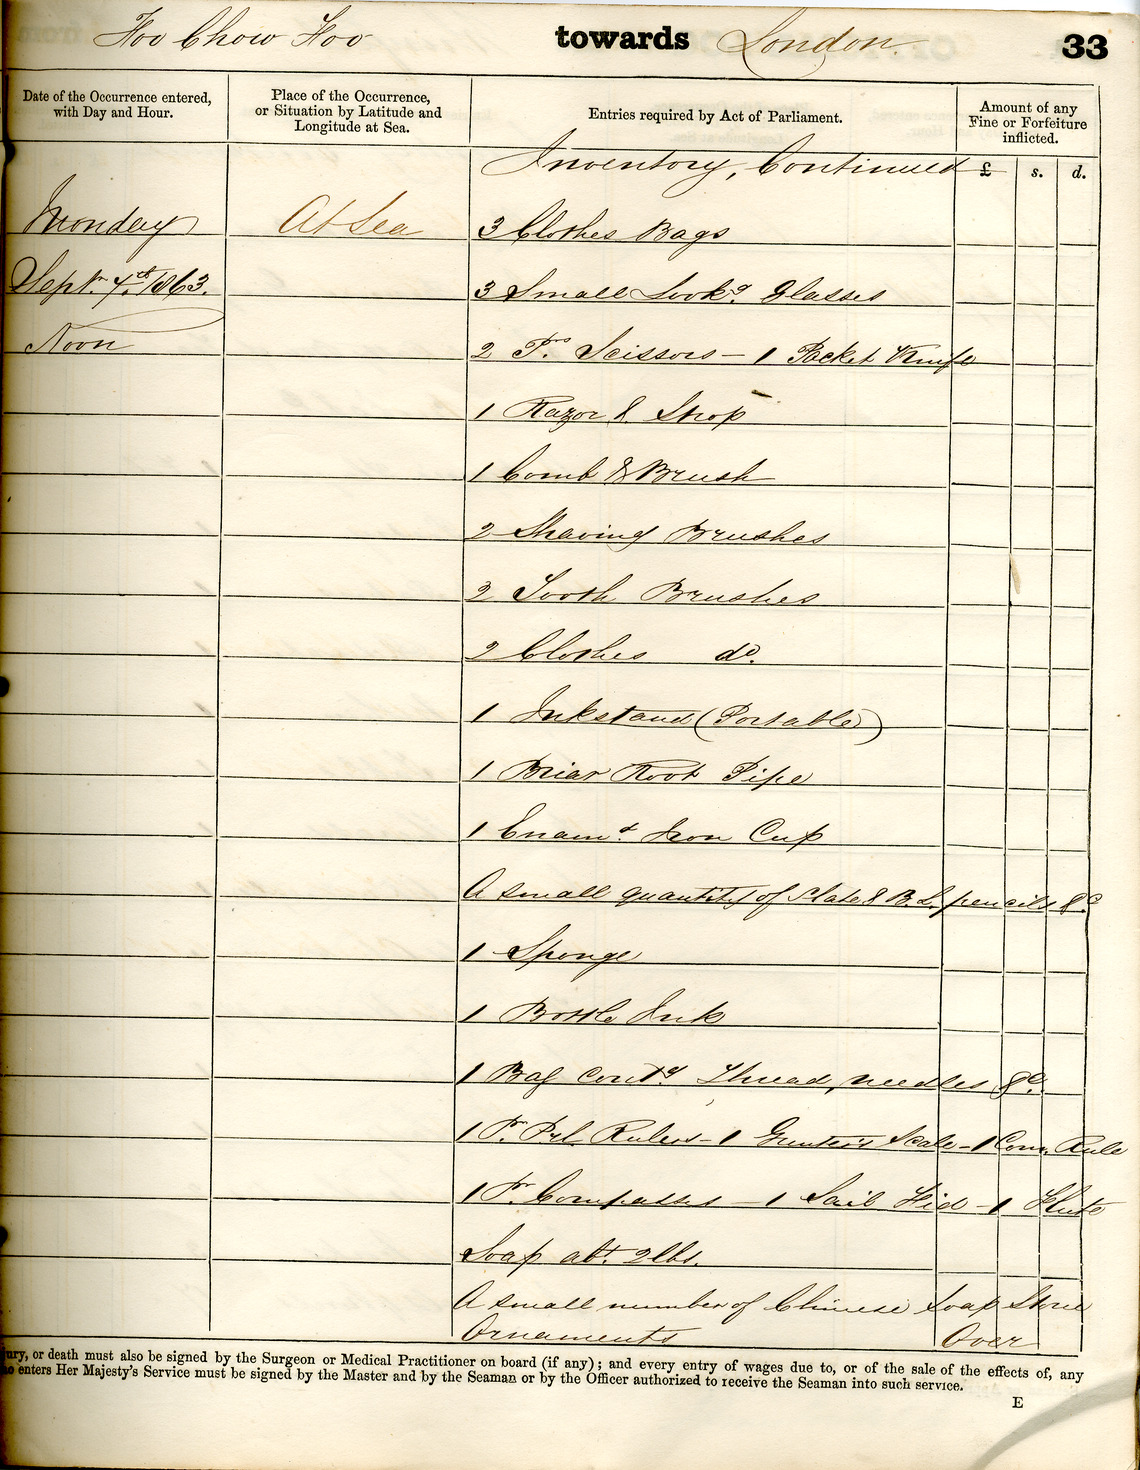 Foo Chow Foo towards London. 33
Date of the Occurrence entered,
with Day and Hour.
Place of the Occurrence,
or Situation by Latitude and
Longitude at Sea.
Entries required by Act of Parliament.
Amount of any
Fine or Forfeiture
inflicted.
£ s. d.
Inventory, Continued
Monday At Sea 3 Clothes Bags
Septr. 7th. 1863. 3 Small Lookg. Glasses
Noon 2 Prs. Scissors – 1 Pocket Knife
1 Razor & Strop
1 Comb & Brush
2 Shaving Brushes
2 Tooth Brushes
2 Clothes do.
1 Inkstand (Portable)
1 Briar Root Pipe
1 Enamd. Iron Cup
A small quantity of Slate & B. L. pencils &c
1 Sponge
1 Bottle Ink
1 Bag contg. Thread, needles &c.
1 Pr. Prl. Rulers – 1 Gunter's Scale – 1 Com. Rule
1 Pr. Compasses – 1 Sail Fid – 1 Flute
Soap abt. 2 lbs.
A small number of Chinese Soap Stone
Ornaments Over
ury, or death must also be signed by the Surgeon or Medical Practitioner on board (if any); and every entry of wages due to, or of the sale of the effects of, any
enters Her Majesty's Service must be signed by the Master and by the Seaman or by the Officer authorized to receive the Seaman into such service.
E